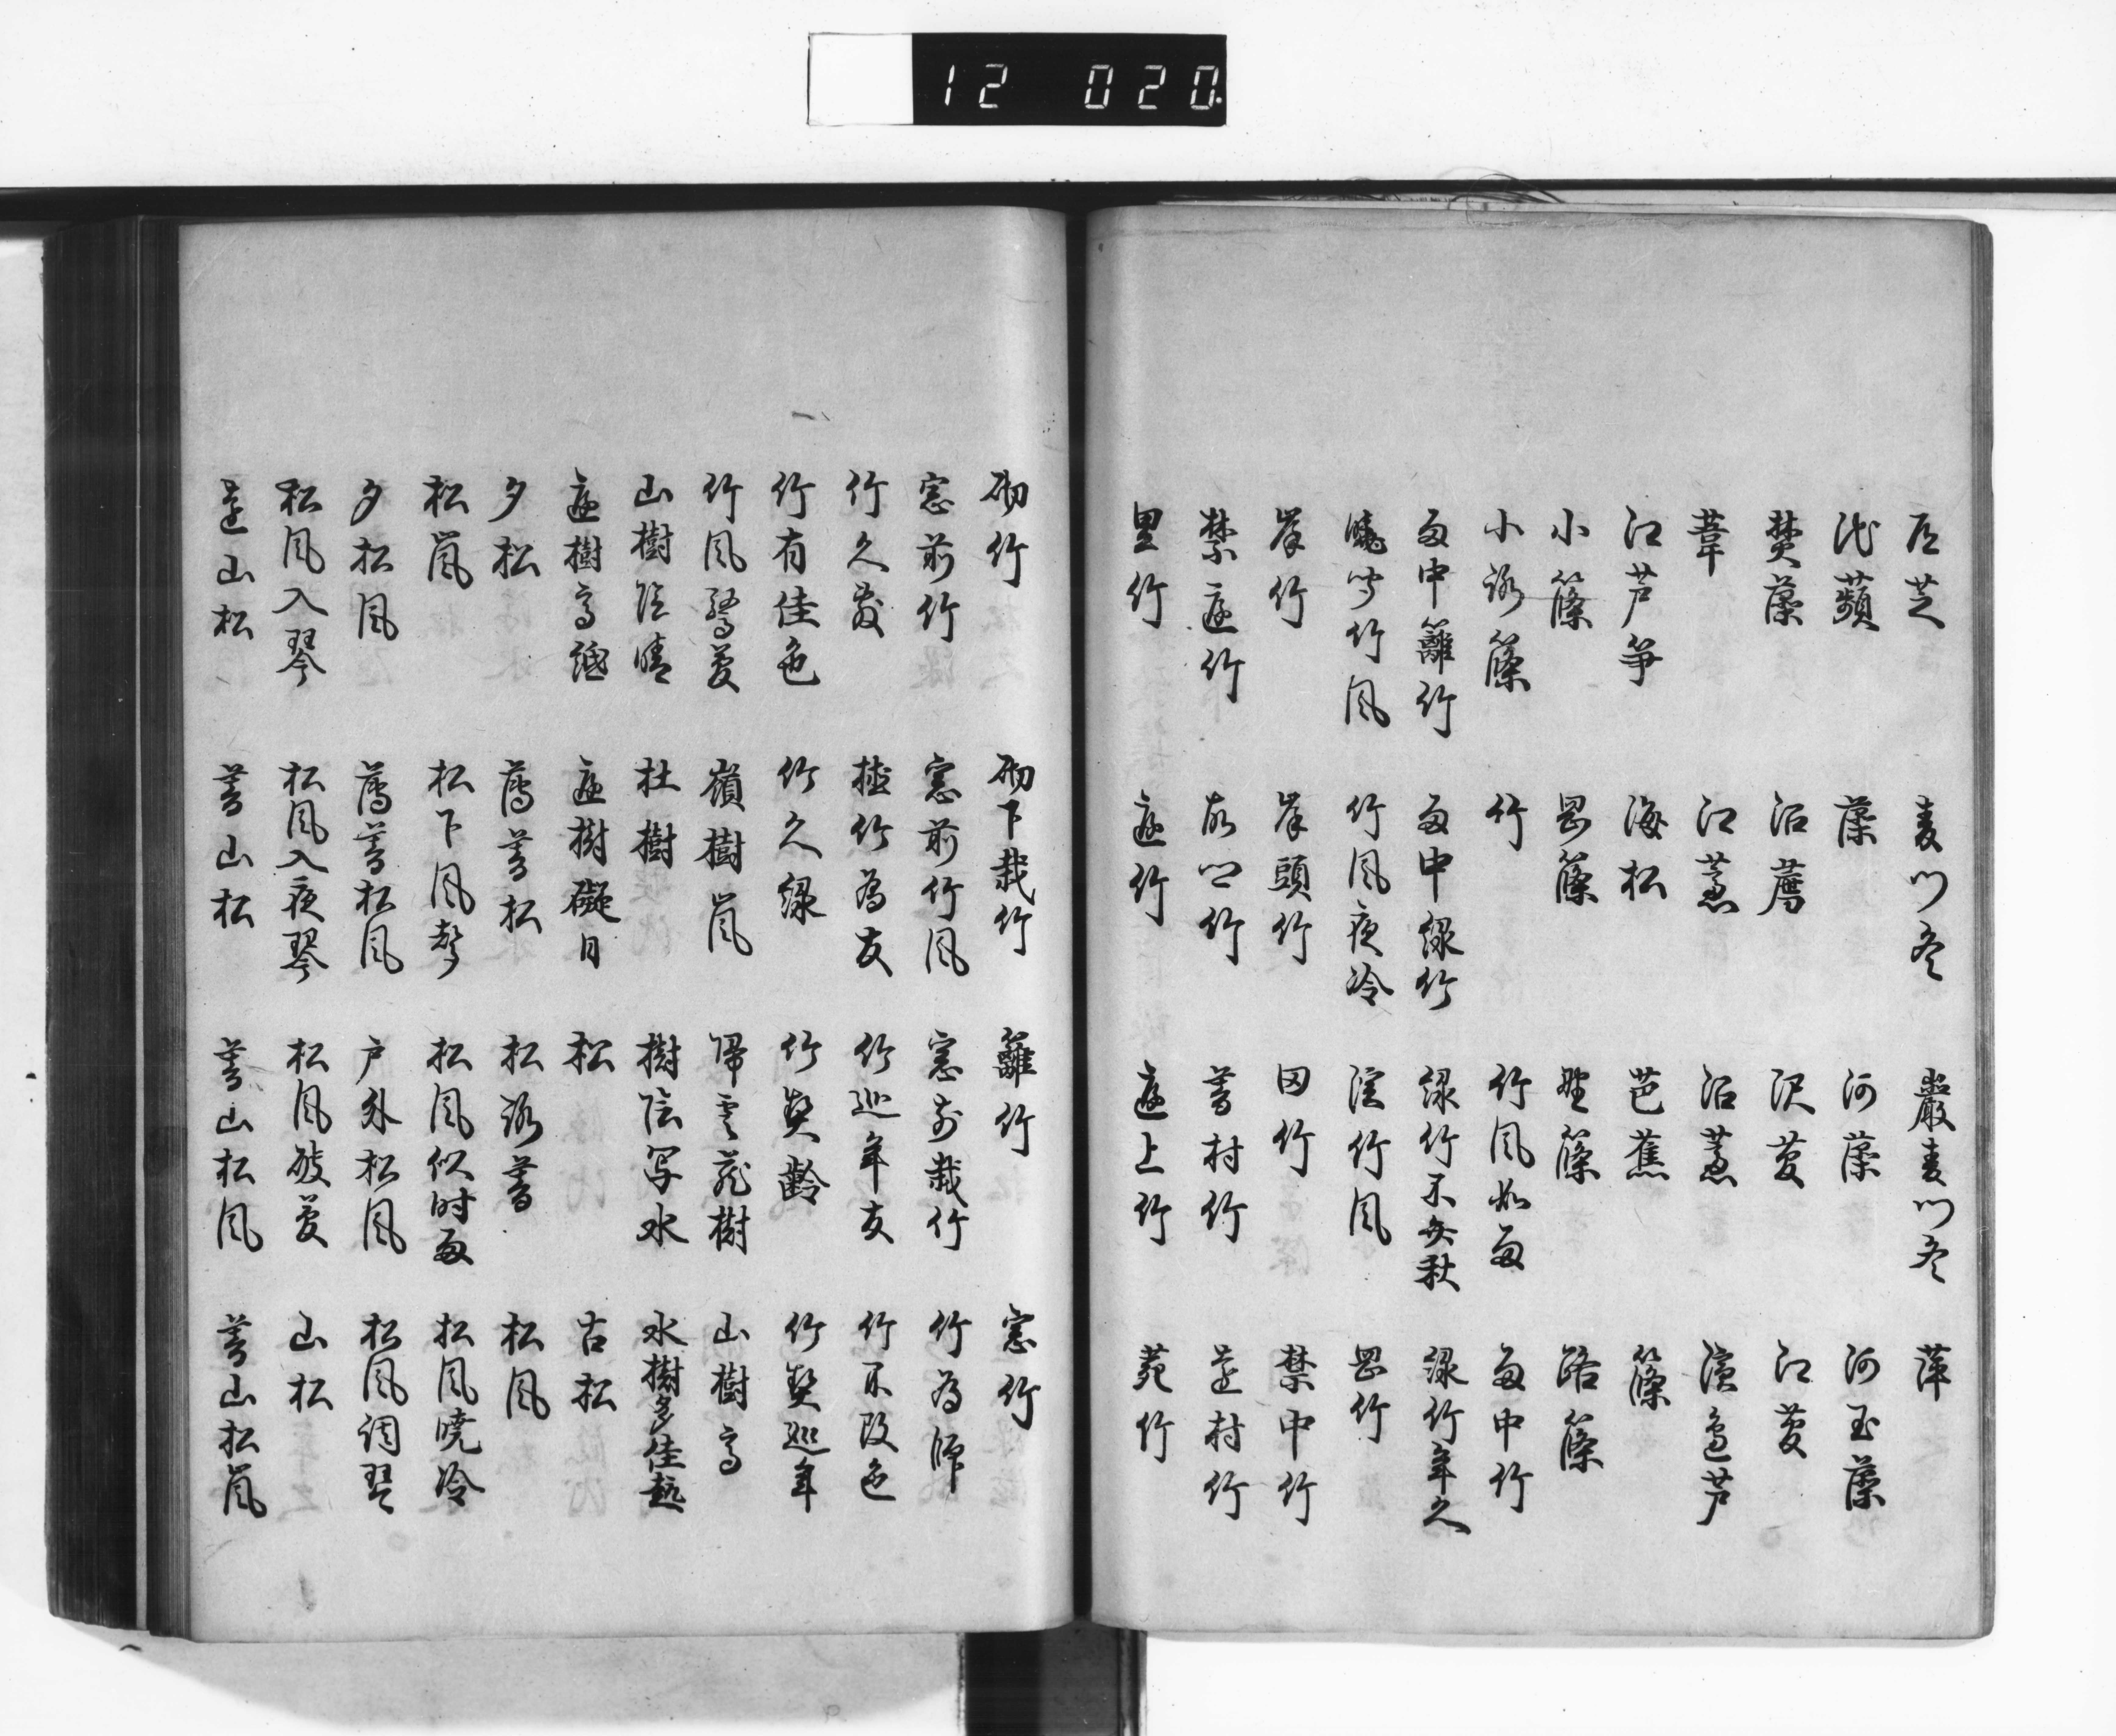 12 020.
庭芝 麦門冬 巌麦門冬 萍
池蘋 藻 河藻 河玉藻
焚藻 沼薦 沢菱 江菱
葦 江蘆 沼蘆 浜邊芦
江芦笋 海松 芭蕉 篠
小篠 岡篠 野篠 路篠
小路篠 竹 竹風如雨 雨中竹
雨中籬竹 雨中緑竹 緑竹不知秋 緑竹年久
暁聞竹風 竹風夜冷 渓竹風 岡竹
岸竹 岸頭竹 田竹 禁中竹
禁庭竹 故郷竹 暮村竹 遠村竹
里竹 庭竹 庭上竹 苑竹
砌竹 砌下栽竹 籬竹 窓竹
窓前竹 窓前竹風 窓前栽竹 竹為師
竹久友 植竹為友 竹巡年友 竹不改色
竹有佳色 竹久緑 竹契齢 竹契巡年
竹風驚夢 嶺樹嵐 帰雲蔵樹 山樹高
山樹陰晴 杜樹 樹陰写水 水樹多佳趣
庭樹高低 庭樹礙日 松 古松
夕松 薄暮松 松路暮 松風
松嵐 松下風声 松風似時雨 松風暁冷
夕松風 薄暮松風 戸外松風 松風調琴
松風入琴 松風入夜琴 松風破夢 山松
遠山松 暮山松 暮山松風 暮山松嵐